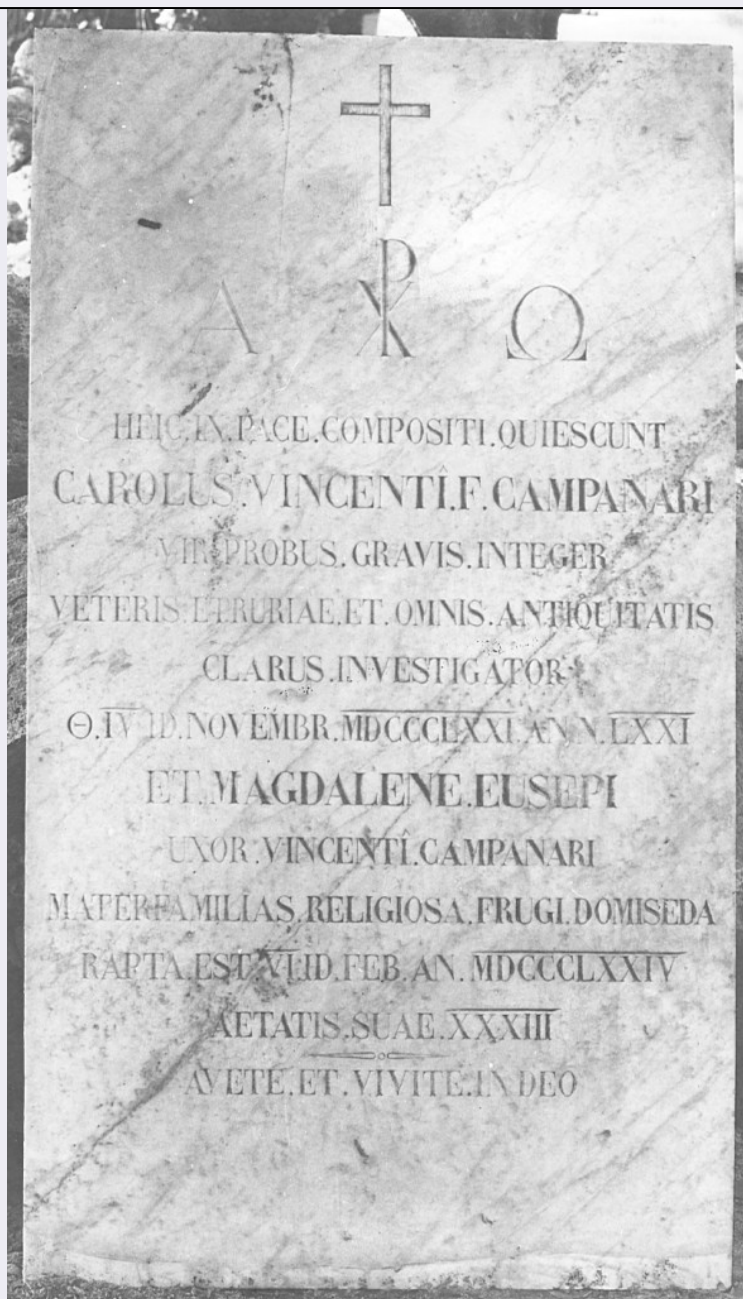 Α ☧ Ω
HEIC.IN.PACE.COMPOSITI.QUIESCUNT
CAROLUS.VINCENTÎ.F.CAMPANARI
VIR.PROBUS.GRAVIS.INTEGER
VETERIS.ETRURIAE.ET.OMNIS.ANTIQUITATIS
CLARUS.INVESTIGATOR
Θ.I̅V̅.ID.NOVEMBR.M̅D̅C̅C̅C̅L̅X̅X̅I̅.ANN.L̅X̅X̅I̅
ET.MAGDALENE.EUSEPI
UXOR.VINCENTÎ.CAMPANARI
MATERFAMILIAS.RELIGIOSA.FRUGI.DOMISEDA
RAPTA.EST.V̅I̅.ID.FEB.AN.M̅D̅C̅C̅C̅L̅X̅X̅I̅V̅
AETATIS.SUAE.X̅X̅X̅I̅I̅I̅
AVETE.ET.VIVITE.IN.DEO